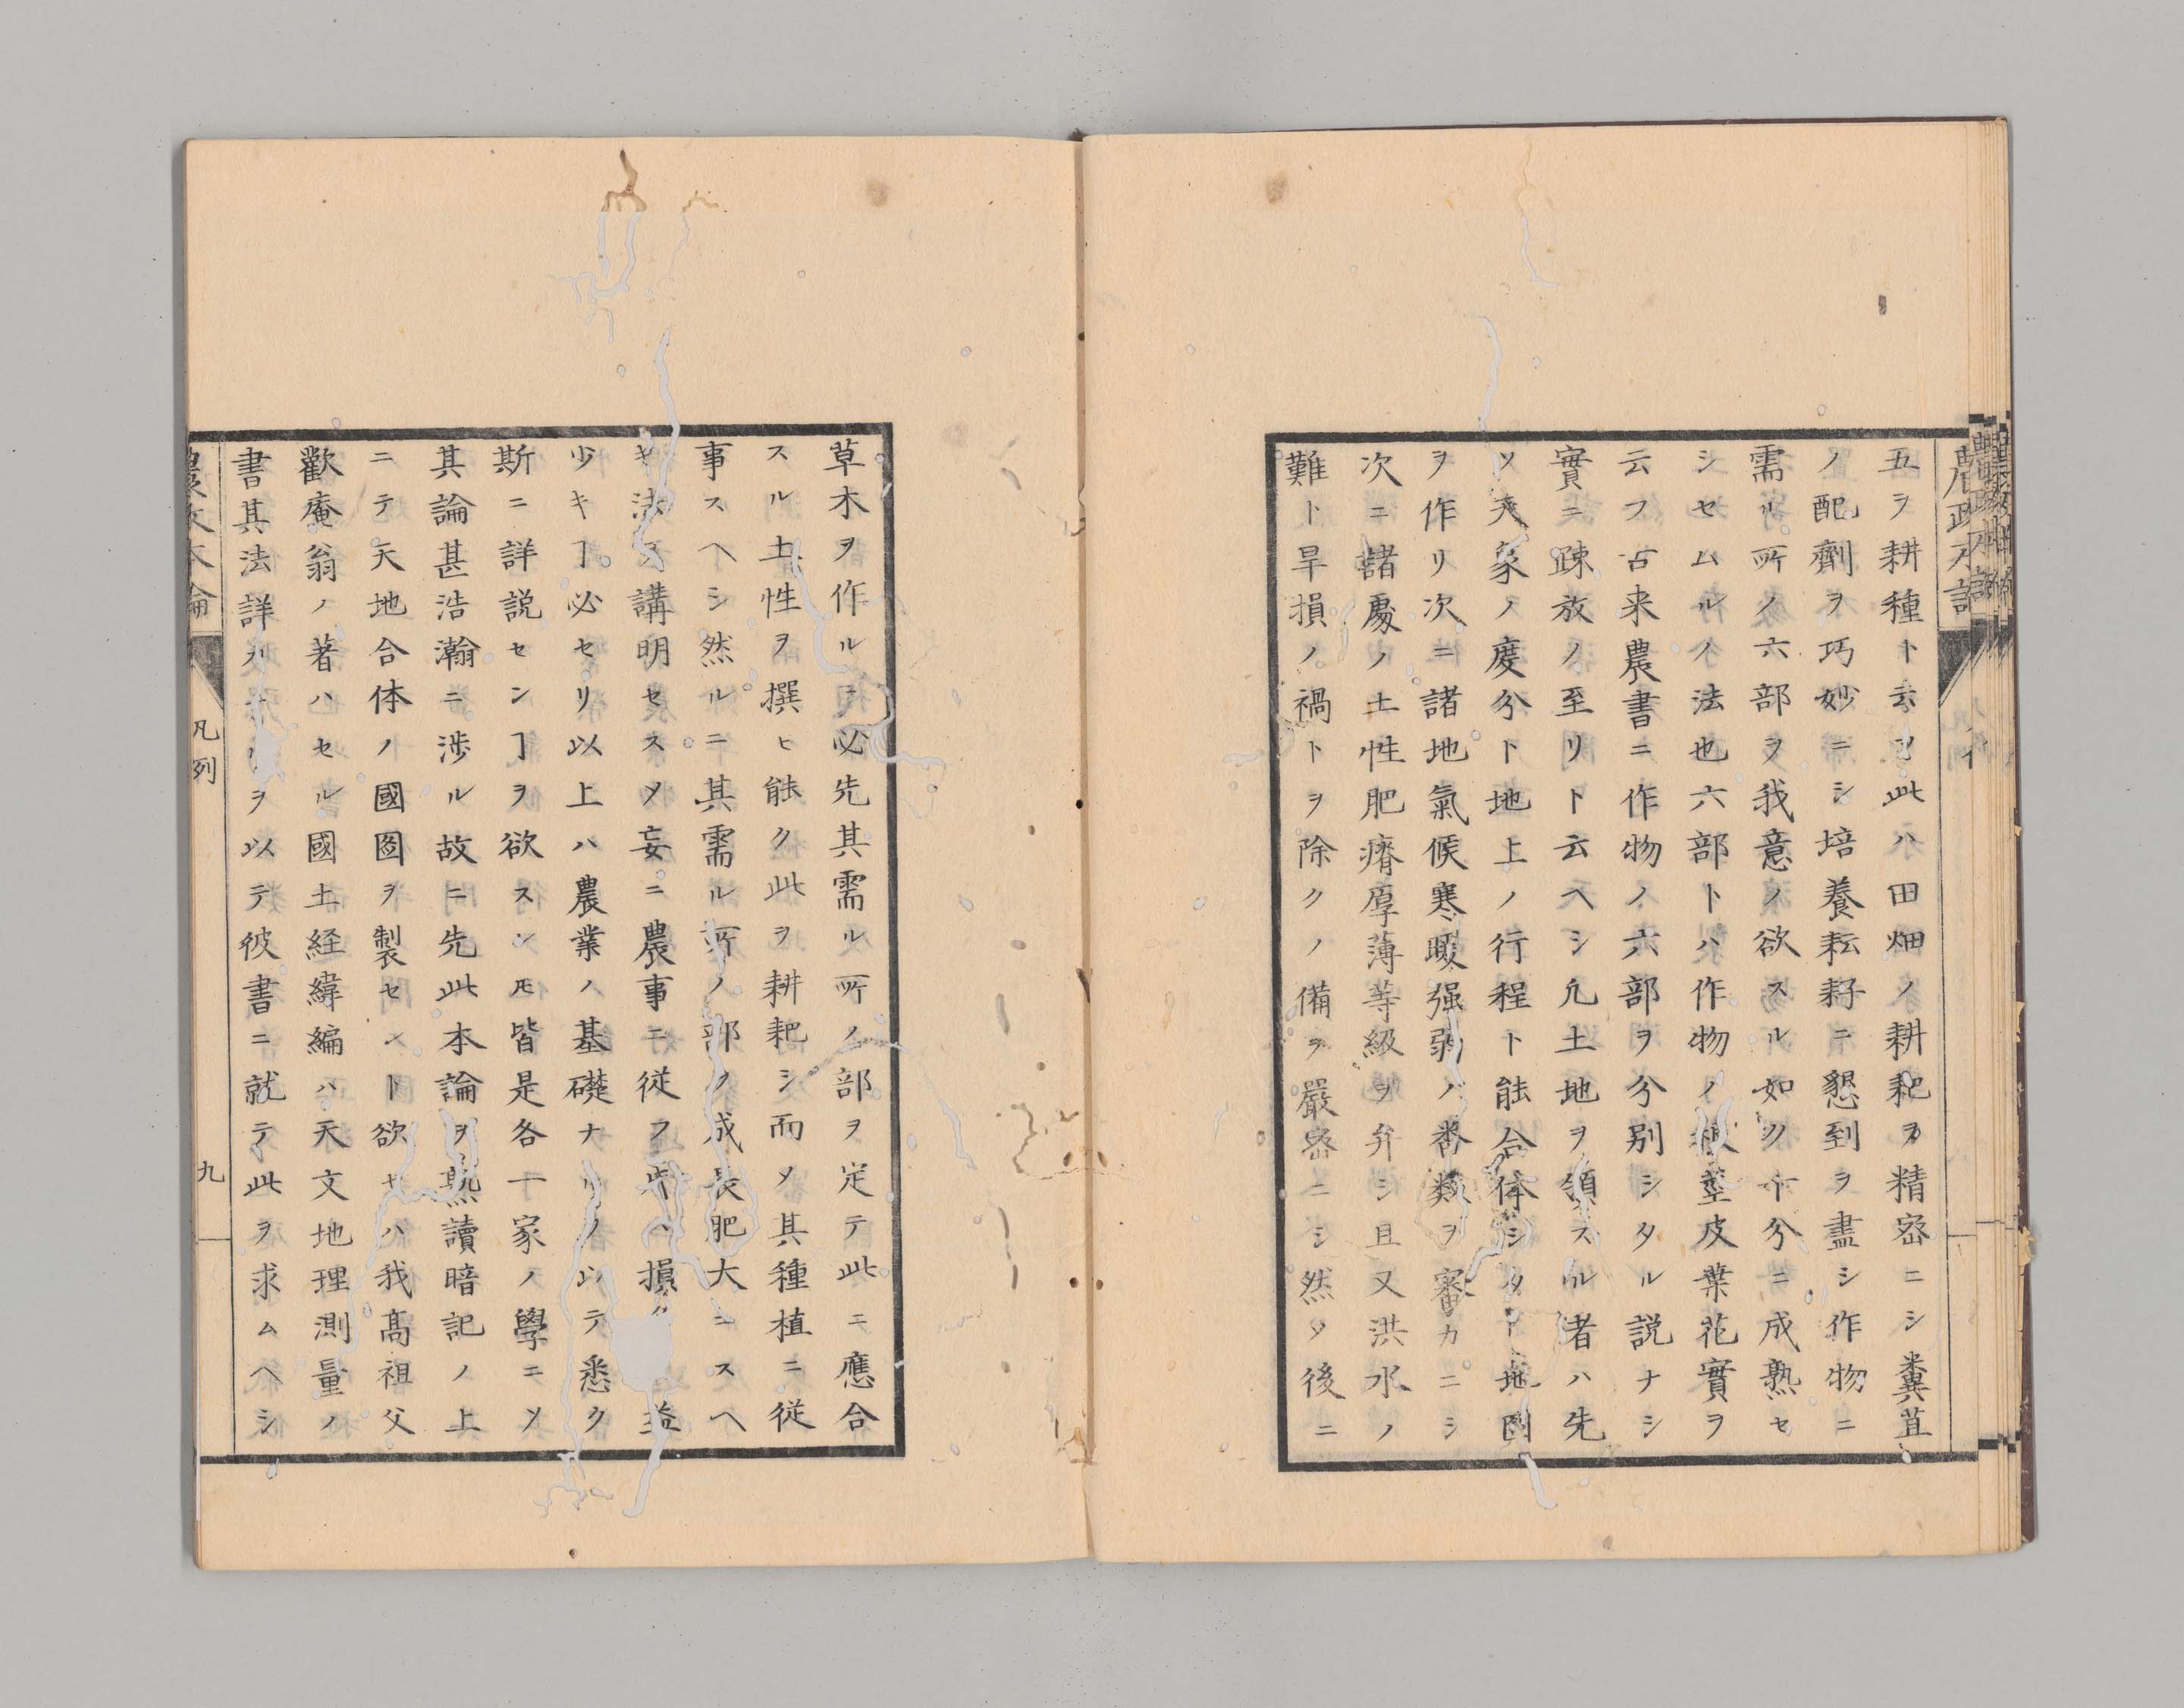 五ヲ耕種ト云フ此ハ田畑ノ耕耙ヲ精宻ニシ糞苴
ノ配劑ヲ巧妙ニシ培養耘耔ニ懇到ヲ盡シ作物ニ
需ル所ノ六部ヲ我意ノ欲スル如ク十分ニ成熟セ
シセムルノ法也六部トハ作物ノ根莖皮葉花實ヲ
云フ古来農書ニ作物ノ六部ヲ分别シタル説ナシ
實ニ踈放ノ至リト云ヘシ凢土地ヲ領スル者ハ先
ソ天象ノ度分ト地上ノ行程ト能合体シタル地圖
ヲ作リ次ニ諸地氣候寒暖强弱ノ番類ヲ審カニシ
次ニ諸處ノ土性肥瘠厚薄等級ヲ弁シ且又洪水ノ
難ト旱損ノ禍トヲ除クノ備ヲ嚴宻ニシ然メ後ニ
草木ヲ作ルニ必先其需ル所ノ部ヲ定テ此ニ應合
スル土性ヲ撰ヒ能ク此ヲ耕耙シ而メ其種植ニ従
事スヘシ然ルニ其需ル所ノ部ク成長肥大ニスヘ
キ法ヲ講明セスメ妄ニ農事ニ従フ時ハ損多ク益
少キヿ必セリ以上ハ農業ノ基礎ナルノ以テ悉ク
斯ニ詳説センヿヲ欲スレ𪜈皆是各一家ノ學ニメ
其論甚浩瀚ニ渉ル故ニ先此本論ヲ熟讀暗記ノ上
ニテ天地合体ノ國圖ヲ製セントト欲セハ我髙祖父
歡庵翁ノ著ハセル國土経緯編ハ天文地理測量ノ
書其法詳カナルヲ以テ彼書ニ就テ此ヲ求ムヘシ
凡例
九